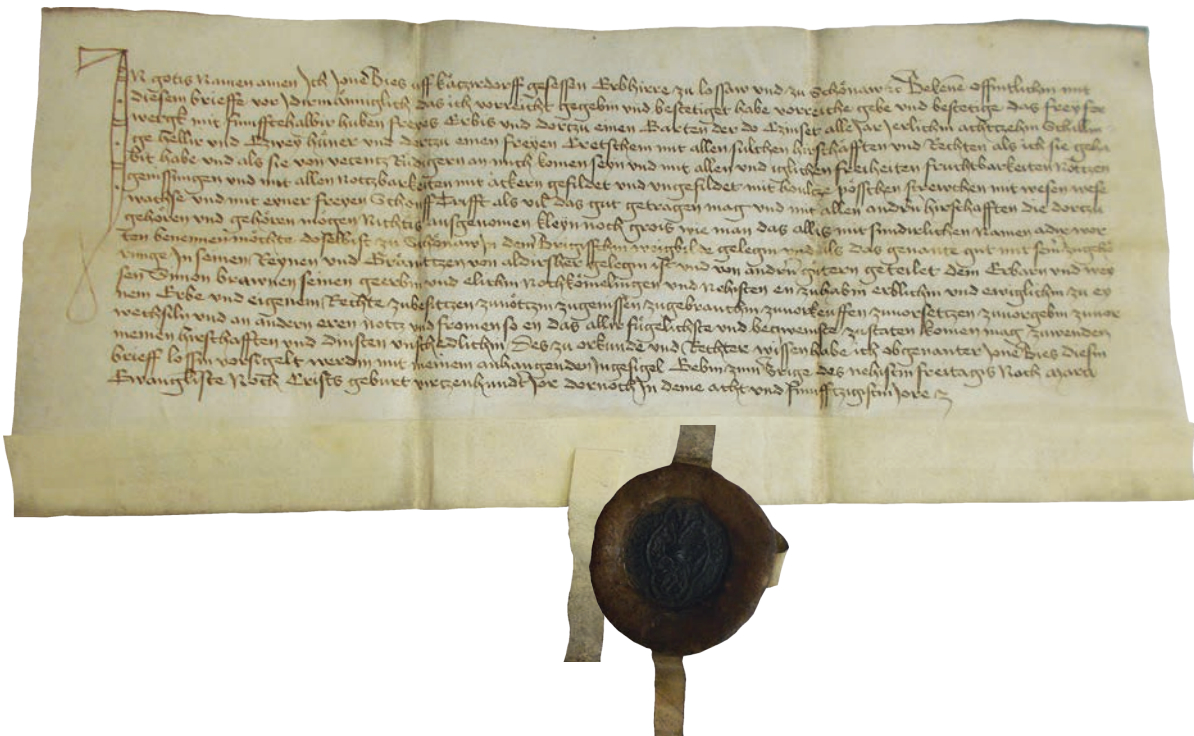 In gotis namen amen Ich Jone Bies uff kaczirdorff gesessen Erbhirre zu lossaw und zu Schönaw etc Bekene offintlichin mit
diesem brieffe vor idirmänniglich das ich vorreicht gegebin und bestetiget habe vorreiche gebe und bestetige das frey for
wergk mit fumfftehalbir huben freyes Erbis und dortzu einen Garten der do Czinset alle Jar Jerlichin achtzehin Schillin
ge hellir und Czwey häner und dortzu einen freyen Cretschem mit allen sulchen hirschafften und Rechten als ich sie geha
bit habe und als sie von Rüdigern an mich komen seyn und mit allen und itzlichen freiheiten fruchtbarkeiten Nötzen
genissungen und mit allen Nottzbarkeiten mit äckern gefildet und ungefildet mit houlcze pösschen strewchen mit wesen wese
wachse und mit eyner freyen Schoff Trifft als vil das gut getragen mag und mit allen andirn hirschafften die dortzu
gehören und gehören mögen Nichtis ausgenomen kleyn noch grois wie man das allis mit sundirlichen Namen adir wor
ten benennen möchte doselbist zu Schönaw In dem weigbilde gelegin und als das genante gut mit sein zugehö
runge In seinen Reynen und Gränitzen von aldirsher gelegin ist und von andirn gütern geteilet dem Erbarn und wey
sen Simon brawnen seinen geerbin und elichin Nochkömelingen und Nehisten en zuhabin erblichin und ewiglichin zu ey
nem Erbe und eigenem Rechte zubesitzen zunötzin zugenissen zugebrauchin zuvorkeuffen zuvorsetzen zuvorgebin zuvor
wechsiln und an andern eren nottz und fromen so en das allir fügelichste und beqwemste zustaten komen mag zuwenden
meinen hirschafften und dinsten unschedlichin Des zu orkunde und Rechter wissen habe ich obgenanter Jone Bies diesin
brieff lossin vorsigelt werdin mit meinem anhangenden Ingesigel Gebin zum Brige des nehistin freitagis Noch Marci
Ewangeliste Noch Crists geburt virtzenhundirt Jor dornoch In deme acht und fumfftzigstin Jore